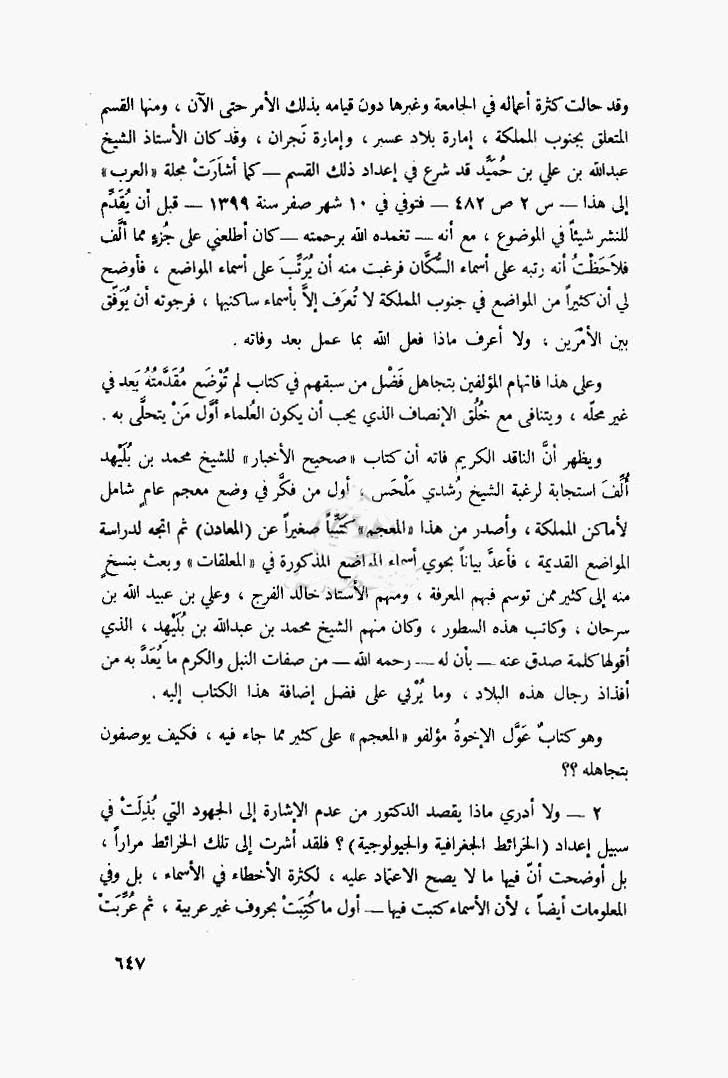 وقد حالت كثرة أعماله في الجامعة وغيرها دون قيامه بذلك الأمر حتى الآن ، ومنها القسم
المتعلق بجنوب المملكة ، إمارة بلاد عسير ، وإمارة نَجران ، وقد كان الأستاذ الشيخ
عبدالله بن علي بن حُمَيِّد قد شرع في إعداد ذلك القسم — كما أشَارَتْ مجلة «العرب»
إلى هذا — س ٢ ص ٤٨٢ — فتوفي في ١٠ شهر صفر سنة ١٣٩٩ — قبل أن يُقَدِّم
للنشر شيئاً في الموضوع ، مع أنه — تغمده الله برحمته — كان أطلعني على جُزءٍ مما ألَّف
فلاَحَظْتُ أنه رتبه على أسماء السُّكَّان فرغبت منه أن يُرَتِّبَ على أسماء المواضع ، فأوضح
لي أن كثيراً من المواضع في جنوب المملكة لا تُعرَف إلاَّ بأسماء ساكنيها ، فرجوته أن يُوَفِّق
بين الأمْرَين ، ولا أعرف ماذا فعل الله بما عمل بعد وفاته .
وعلى هذا فاتهام المؤلفين بتجاهل فَضْل من سبقهم في كتاب لم تُوْضَع مُقَدَّمَتُهُ يَعد في
غير محلّه ، ويتنافى مع خُلُق الإنصاف الذي يجب أن يكون العُلماء أوَّل مَنْ يتحلَّى به .
ويظهر أنَّ الناقد الكريم فاته أن كتاب «صحيح الأخبار» للشيخ محمد بن بُلَيْهد
أُلِّفَ استجابة لرغبة الشيخ رُشدي مَلْحَس ، أول من فكَّر في وضع معجم عامٍ شامل
لأماكن المملكة ، وأصدر من هذا «المعجم» كتَيِّباً صغيراً عن (المعادن) ثم اتجه لدراسة
المواضع القديمة ، فأعدَّ بياناً يحوي أسماء المواضع المذكورة في «المعلقات» وبعث بنسخٍ
منه إلى كثير ممن توسم فيهم المعرفة ، ومنهم الأستاذ خالد الفرج ، وعلي بن عبيد الله بن
سرحان ، وكاتب هذه السطور ، وكان منهم الشيخ محمد بن عبدالله بن بُلَيْهِد ، الذي
أقولها كلمة صدق عنه — بأن له — رحمه الله — من صفات النبل والكرم ما يُعَدَّ به من
أفذاذ رجال هذه البلاد ، وما يُرْبي على فضل إضافة هذا الكتاب إليه .
وهو كتابٌ عَوَّل الإخوةُ مؤلفو «المعجم» على كثير مما جاء فيه ، فكيف يوصفون
بتجاهله ؟؟
٢ — ولا أدري ماذا يقصد الدكتور من عدم الإشارة إلى الجهود التي بُذِلَتْ في
سبيل إعداد (الخرائط الجغرافية والجيولوجية) ؟ فلقد أشرت إلى تلك الخرائط مراراً ،
بل أوضحت أنّ فيها ما لا يصح الاعتماد عليه ، لكثرة الأخطاء في الأسماء ، بل وفي
المعلومات أيضاً ، لأن الأسماء كتبت فيها — أول ما كُتِبَتْ بحروف غير عربية ، ثم عُرِّبَتْ
٦٤٧